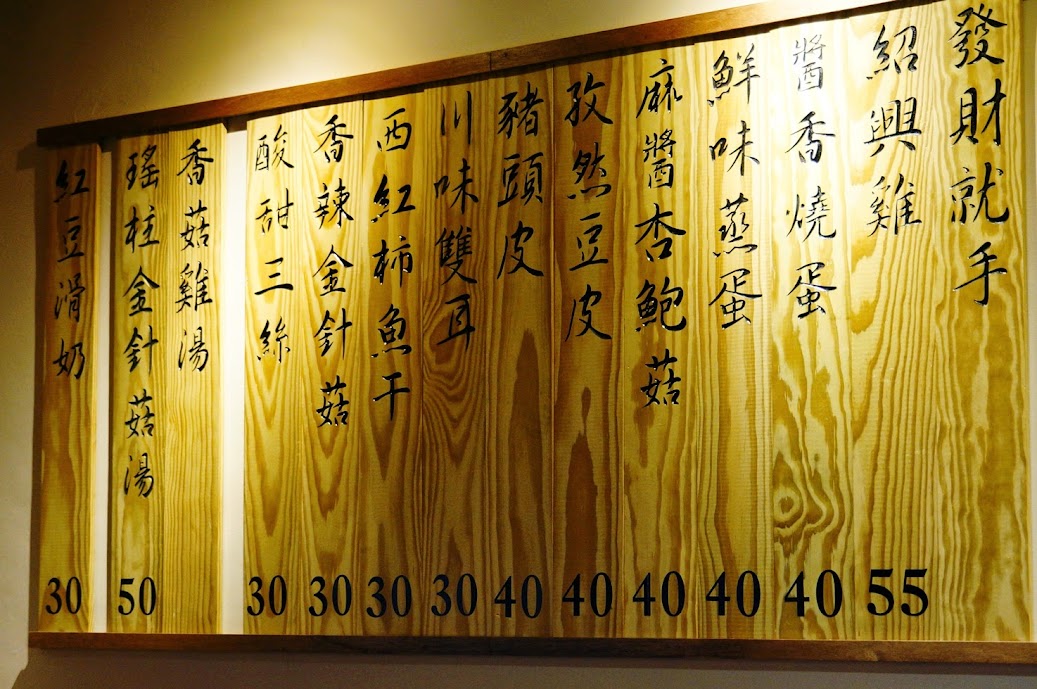 發財就手
紹興雞
55
醬香燒蛋
40
鮮味蒸蛋
40
麻醬杏鮑菇
40
孜然豆皮
40
豬頭皮
40
川味雙耳
30
西紅柿魚干
30
香辣金針菇
30
酸甜三絲
30
香菇雞湯
瑤柱金針菇湯
50
紅豆滑奶
30